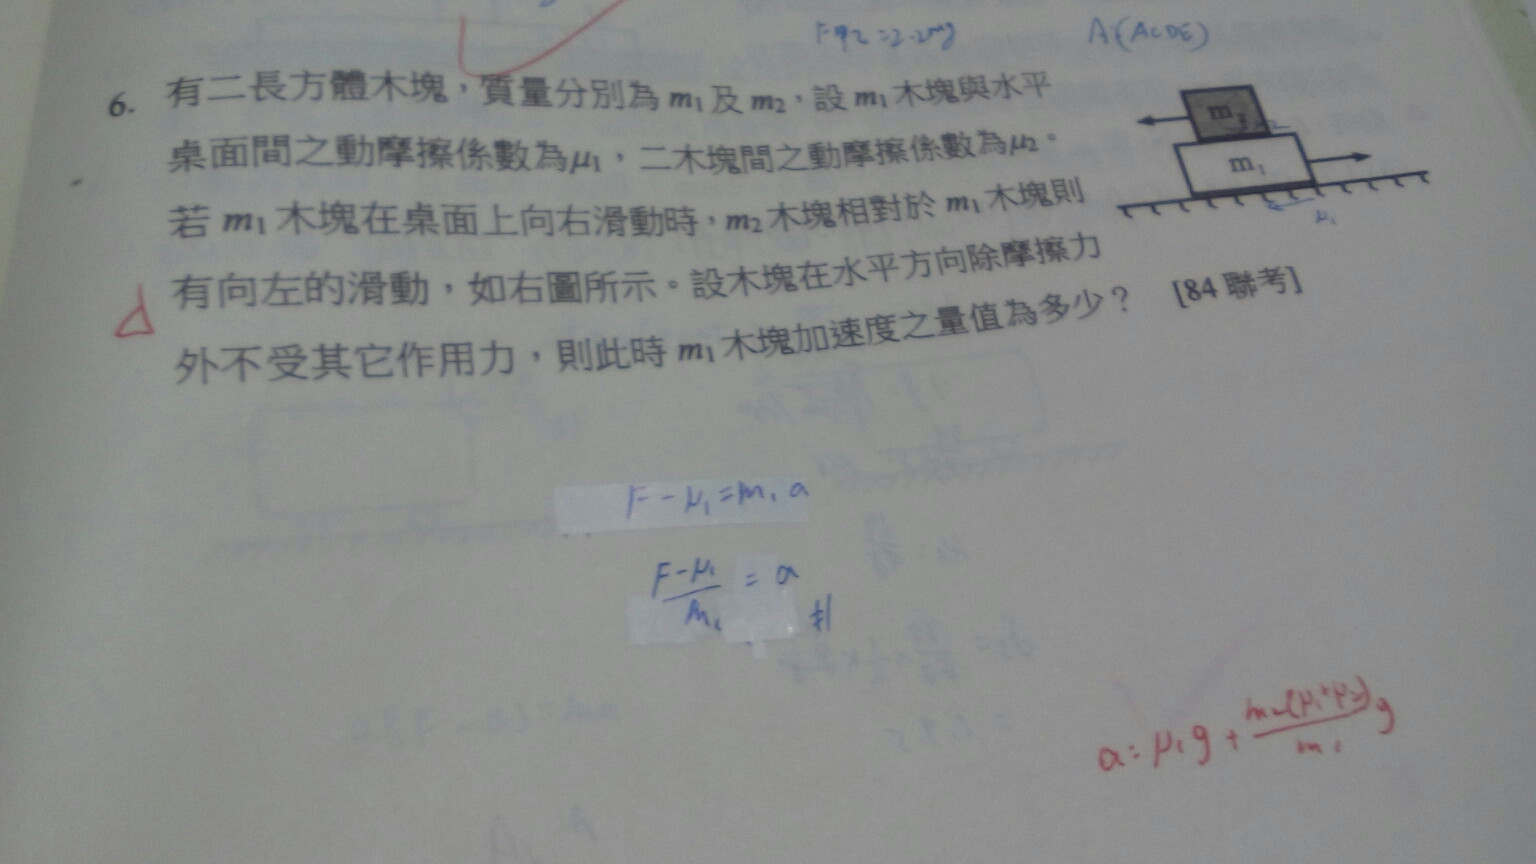 A(ACDE)
6. 有二長方體木塊，質量分別為 m₁ 及 m₂，設 m₁ 木塊與水平
桌面間之動摩擦係數為μ₁，二木塊間之動摩擦係數為μ₂。
若 m₁ 木塊在桌面上向右滑動時，m₂ 木塊相對於 m₁ 木塊則
有向左的滑動，如右圖所示。設木塊在水平方向除摩擦力
外不受其它作用力，則此時 m₁ 木塊加速度之量值為多少？ [84 聯考]
m₂
m₁
μ₁
F-μ₁=m₁a
F-μ₁/m₁ = a #
a=μ₁g+m₂(μ₁+μ₂)/m₁ g